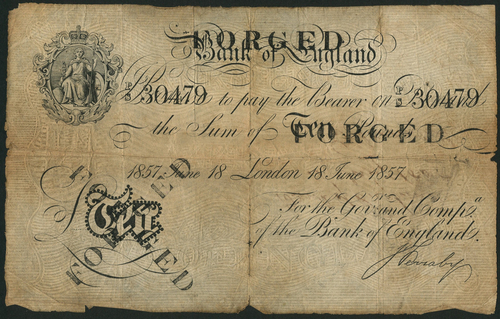 FORGED
Bank of England
P/S 30479 to pay the Bearer on P/S 30479
the Sum of Ten Pounds
FORGED
1857 June 18 London 18 June 1857
For the Gov.r and Comp.a
of the Bank of England.
£ Ten
FORGED
FORGED